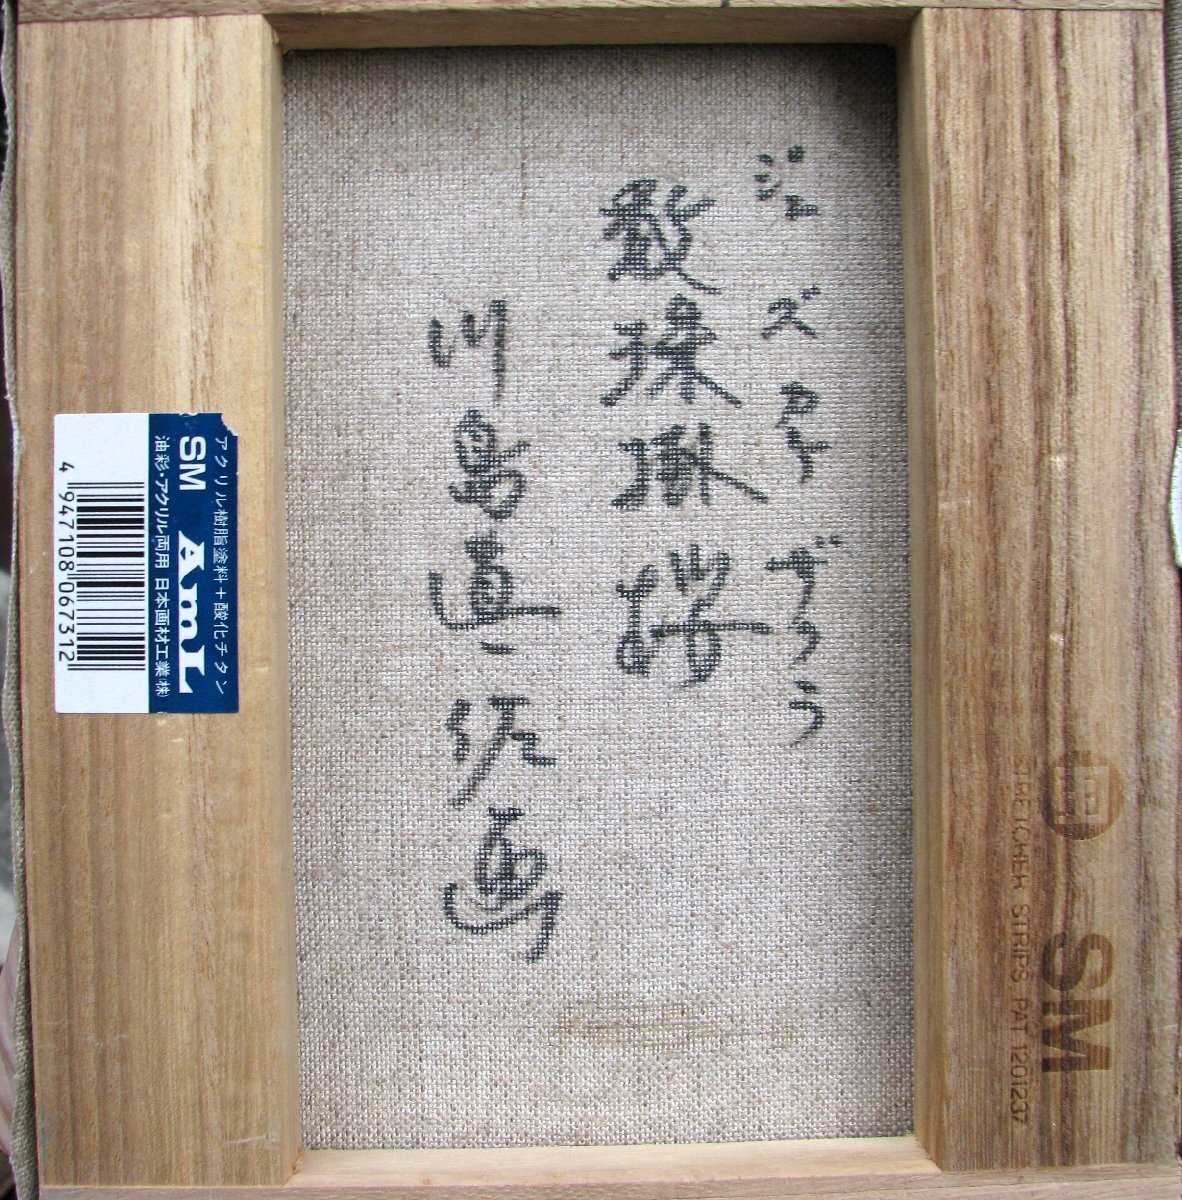 ジュズカケザクラ
数珠掛桜
川島
アクリル樹脂塗料+酸化チタン
SM AmL
油彩・アクリル両用 日本画材工業(株)
4 947108 067312
SM
STRETCHER STRIPS PAT 1201237